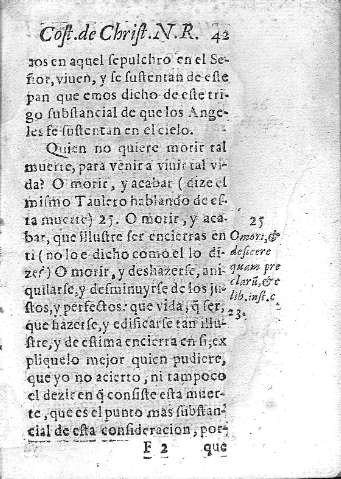 Cost. de Christ. N. R. 42
zos en aquel sepulchro en el Se-
ñor, viuen, y se sustentan de este
pan que emos dicho de este tri-
go substancial de que los Ange-
les se sustentan en el cielo.
Quien no quiere morir tal
muerte, para venir a viuir tal vi-
da? O morir, y acabar (dize el
mismo Taulero hablando de es-
ta muerte) 25. O morir, y aca-
bar, que illustre ser encierras en
ti (no lo e dicho como el lo di-
ze?) O morir, y deshazerse, ani-
quilarse, y desminuyrse de los ju-
stos, y perfectos: que vida, q̃ ser,
que hazerse, y edificarse tan illu-
stre, y de estima encierra en si, ex
pliquelo mejor quien pudiere,
que yo no acierto, ni tampoco
el dezir en q̃ consiste esta muer-
te, que es el punto mas substan-
cial de esta consideracion, por-
F 2 que
25
O mori, &
desicere
quam præ
clarũ, &c
lib. inst. c
23.